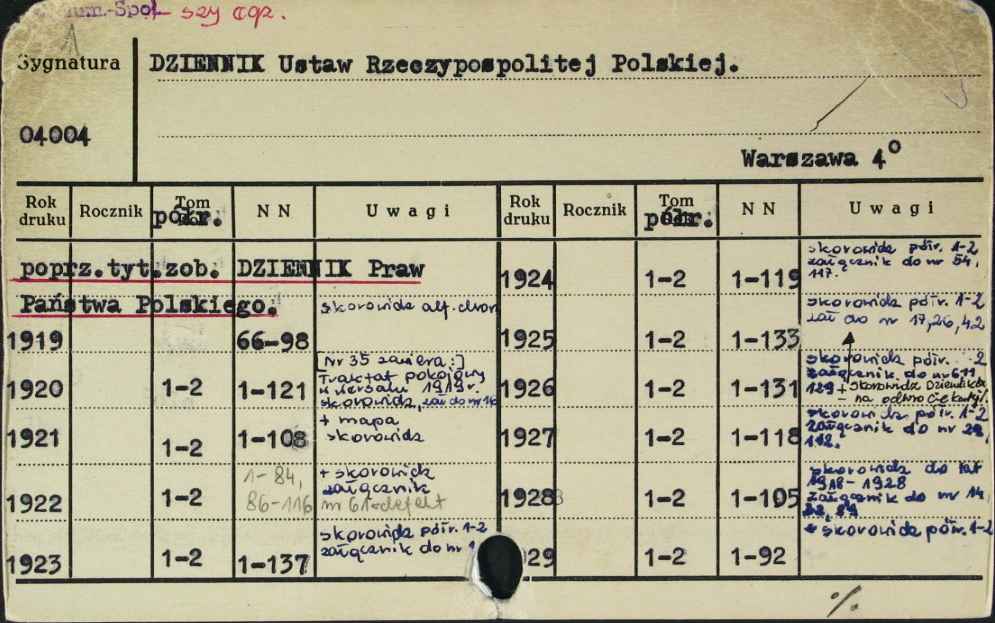 szy cqz.
Sygnatura
DZIENNIK Ustaw Rzeczypospolitej Polskiej.
04004
Warszawa 4°
Rok druku Rocznik Tom półr. N N Uwagi Rok druku Rocznik Tom półr. N N Uwagi
poprz.tyt.zob. DZIENNIK Praw
Państwa Polskiego.
skorowidz alf. chron
1919 66-98
1920 1-2 1-121
[Nr 35 zawiera:]
Traktat pokojowy
w Wersalu 1919r.
skorowidz, zał do nr
1921 1-2 1-108
+ mapa
skorowidz
1922 1-2 1-84,
86-116
+ skorowidz
załącznik
nr 61=defekt
1923 1-2 1-137
skorowidz półr. 1-2
załącznik do nr
1924 1-2 1-119
skorowidz półr. 1-2
załącznik do nr 54,
117.
1925 1-2 1-133
skorowidz półr. 1-2
zał do nr 17,26,42
1926 1-2 1-131
skorowidz półr. 2
załącznik do nr
129 + skorowidz Dziennika
- na odwrocie karty.
1927 1-2 1-118
skorowidz półr. 1-2
załącznik do nr 28,
112.
1928 1-2 1-105
skorowidz do lat
1918-1928
załącznik do nr 14,
29 1-2 1-92
+ skorowidz półr. 1-2
%